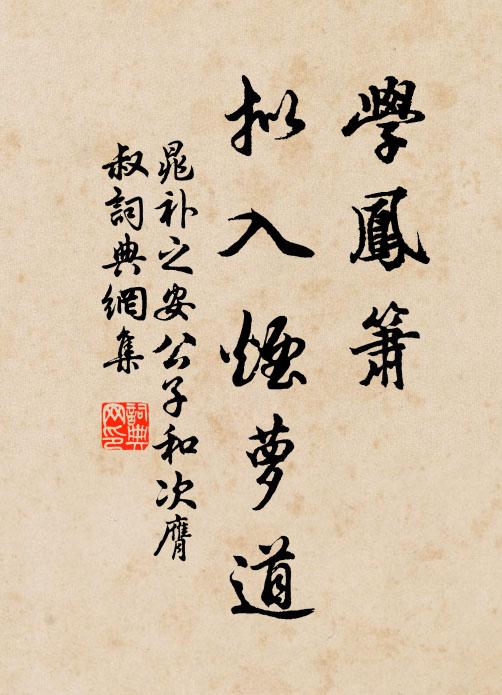 學鳳簫
拟入煙夢道
晁补之安公子和次膺
叔詞典網集
詞典
网印